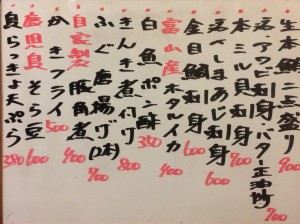 生本鮪二点盛り 900
活・アワビ刺身・バター正油焼
本ミル貝刺身 900
活〆しまあじ刺身 600
金目鯛刺身 600
富山産ホタルイカ 400
白魚ポン酢 350
きんき煮付け 800
ふぐ唐揚げ(2本) 900
自家製豚角煮 400
かきフライ 500
鹿児島そら豆 600
島らっきょ天ぷら 380